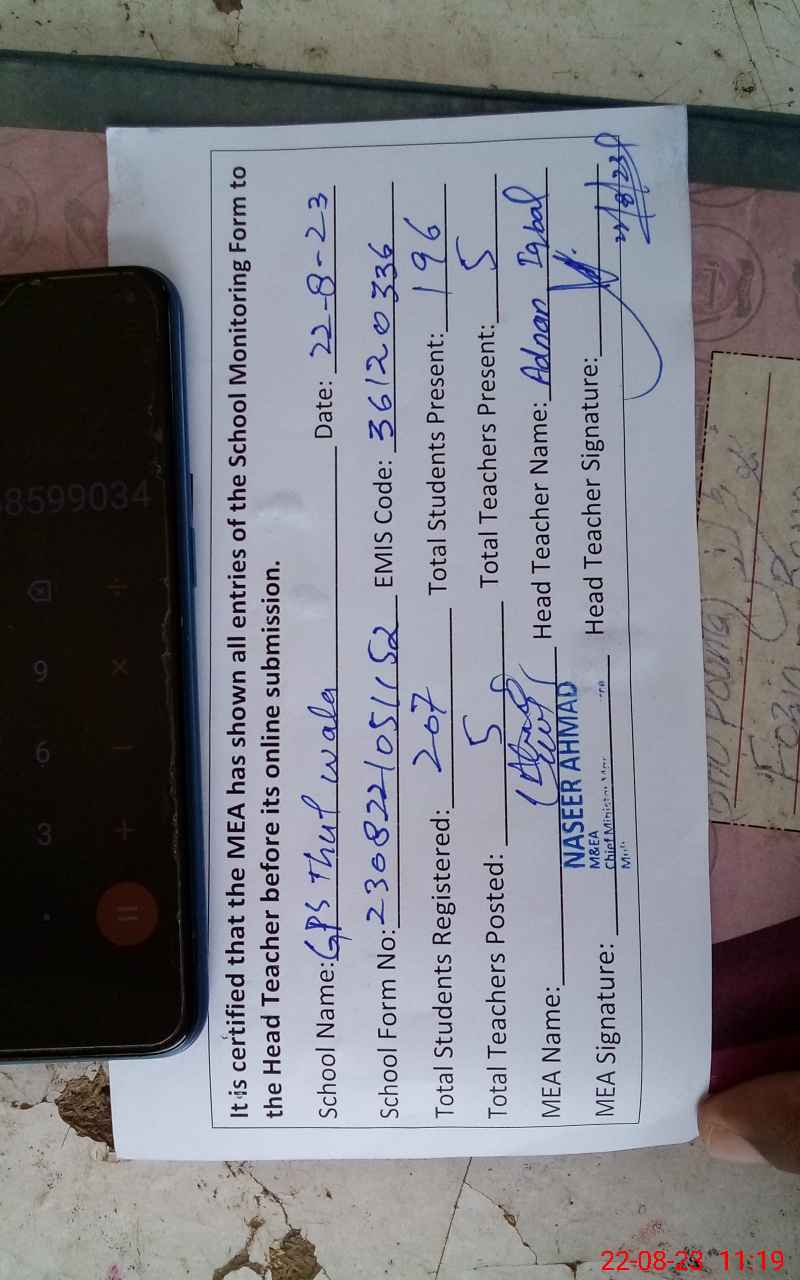 It is certified that the MEA has shown all entries of the School Monitoring Form to
the Head Teacher before its online submission.
School Name: GPS Thul wala Date: 22-8-23
School Form No: 2308221051152 EMIS Code: 36120336
Total Students Registered: 207 Total Students Present: 196
Total Teachers Posted: 5 Total Teachers Present: 5
MEA Name: Head Teacher Name: Adnan Iqbal
NASEER AHMAD
M&EA
Chief Minister
MEA Signature: Head Teacher Signature:
22/8/23
8599034
9 ×
6 −
3 +
. =
22-08-23 11:19